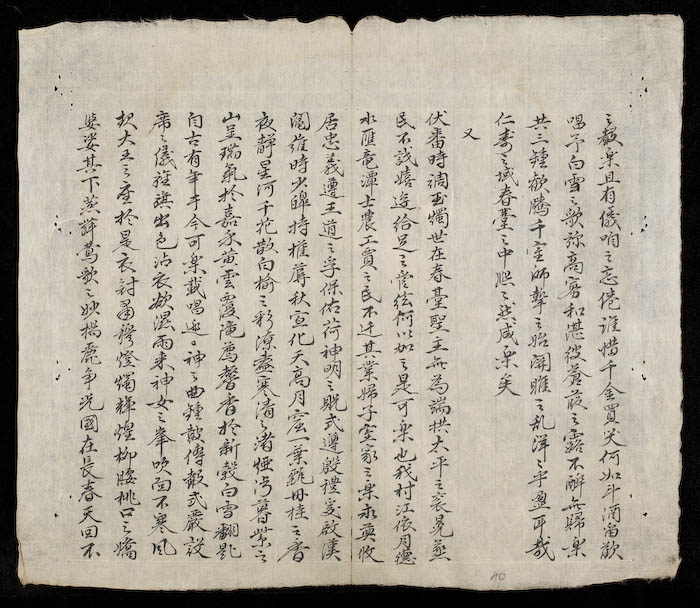 之聲樂且有儀咱之忘倦誰惜千金買笑何如斗酒留歡
唱予白雪之歌弥高寡和湛彼蒼葭之露不醉無歸樂
共三鍾歡騰千室師摯之始關雎之乱洋之乎盈耳哉
仁壽之域春臺之中熙之然咸樂矣
又
伏番時調玉燭世在春臺聖主無為端拱太平之袞冕無
民不設嬉遊給足之管絃何以加之是可樂也我村江依月德
水匯竜潭士農工賈之民不迁其業婦子室家之樂永奠攸
居忠義遵王道之孚保佑荷神明之貺式遵殷禮爰啟漢
閣維時少皥持權蓐秋宣化天高月窗一葉飄丹桂之香
夜靜星河千花散白榆之彩潦盡寒清之渚烟凝暮紫之
山呈瑞氣於嘉禾黃雲覆隴薦馨香於新穀白雪翻匙
自古有年于今可樂載唱迎之神之曲鍾鼓傳聲式嚴設
席之儀旌旗出色沾衣欲濕雨来神女之峯吹面不寒風
契大王之臺於是衣冠肅穆燈燭輝煌柳腰桃口之嬌
婆娑其下燕舞鶯歌之妙揭麗爭光國在長春天回不
10